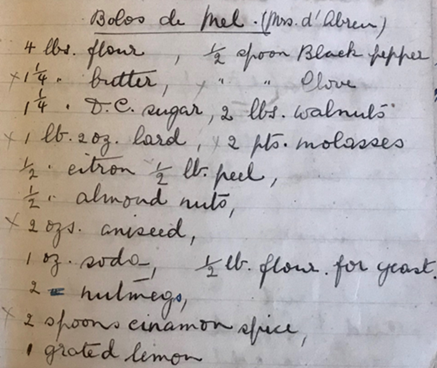 Bolos de Mel. (Mrs. d'Abreu)
4 lbs. flour , 1/2 spoon Black pepper
x 1 1/4 " butter, " " Clove
1 1/4 " D.C. sugar, 2 lbs. walnuts
x 1 lb. 2 oz. lard, x 2 pts. molasses
1/2 " citron 1/2 lb. peel,
1/2 " almond nuts,
x 2 ozs. aniseed,
1 oz. soda, 1/2 lb. flour. for yeast.
2 = nutmegs,
x 2 spoons cinamon spice,
1 grated lemon